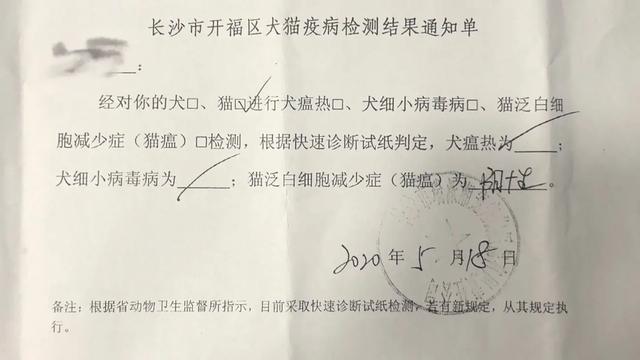 长沙市开福区犬猫疫病检测结果通知单
：
经对你的犬□、猫☑进行犬瘟热□、犬细小病毒病□、猫泛白细
胞减少症（猫瘟）□检测，根据快速诊断试纸判定，犬瘟热为____；
犬细小病毒病为____；猫泛白细胞减少症（猫瘟）为 阳性 。
2020 年 5 月 18 日
备注：根据省动物卫生监督所指示，目前采取快速诊断试纸检测，若有新规定，从其规定执
行。